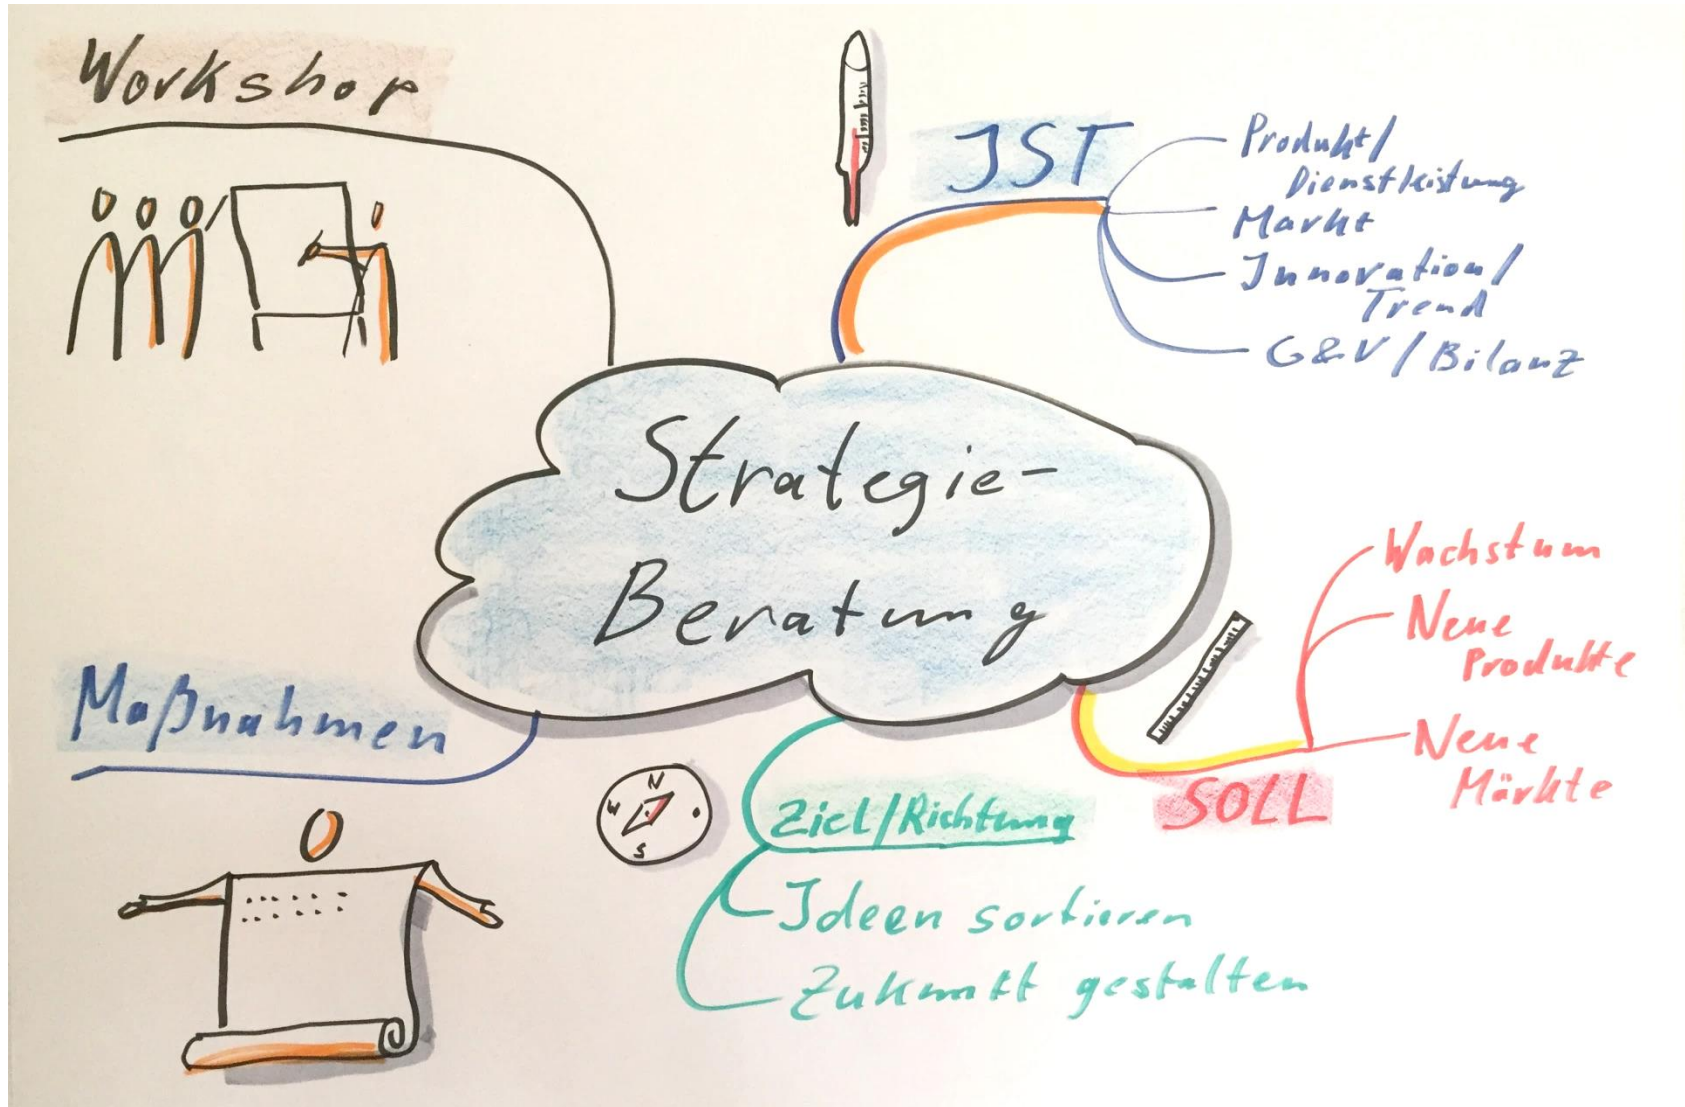 Workshop
IST
Produkt/
Dienstleistung
Markt
Innovation/
Trend
G&V/Bilanz
Strategie-
Beratung
Wachstum
Neue
Produkte
Neue
Märkte
SOLL
Maßnahmen
Ziel/Richtung
Ideen sortieren
Zukunft gestalten
N
W
S